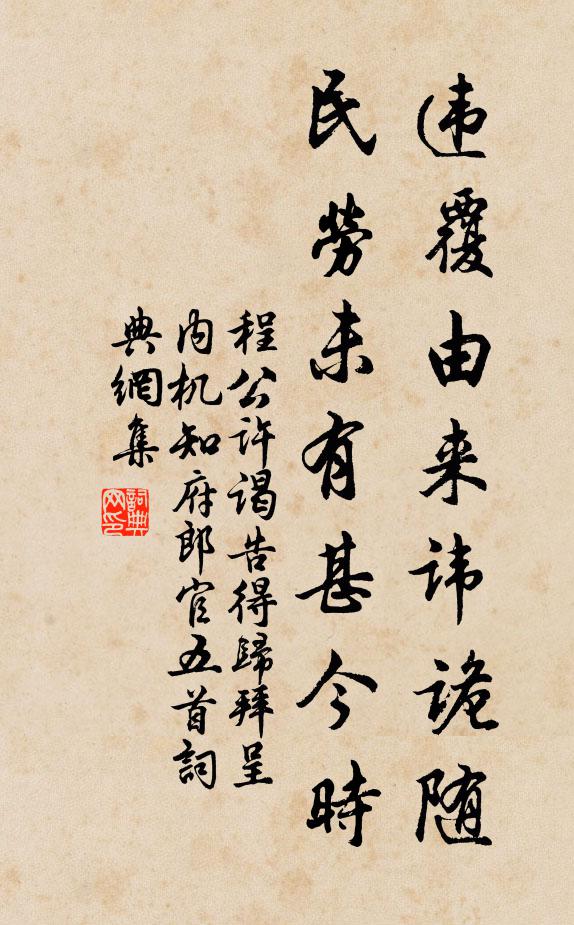 违覆由来讳诡随
民劳未有甚今時
程公许谒告得歸拜呈
内机知府郎官五首詞
典網集
詞典網印